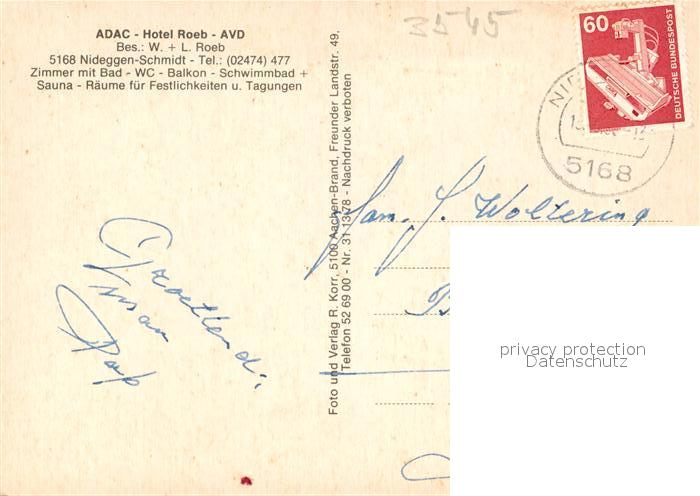 ADAC - Hotel Roeb - AVD
Bes.: W. + L. Roeb
5168 Nideggen-Schmidt - Tel.: (02474) 477
Zimmer mit Bad - WC - Balkon - Schwimmbad +
Sauna - Räume für Festlichkeiten u. Tagungen
3545
60
DEUTSCHE BUNDESPOST
5168
Foto und Verlag R. Korr, 5100 Aachen-Brand, Freunder Landstr. 49,
Telefon 52 69 00 - Nr. 31 13 78 - Nachdruck verboten
Fam. J. Woltering
privacy protection
Datenschutz